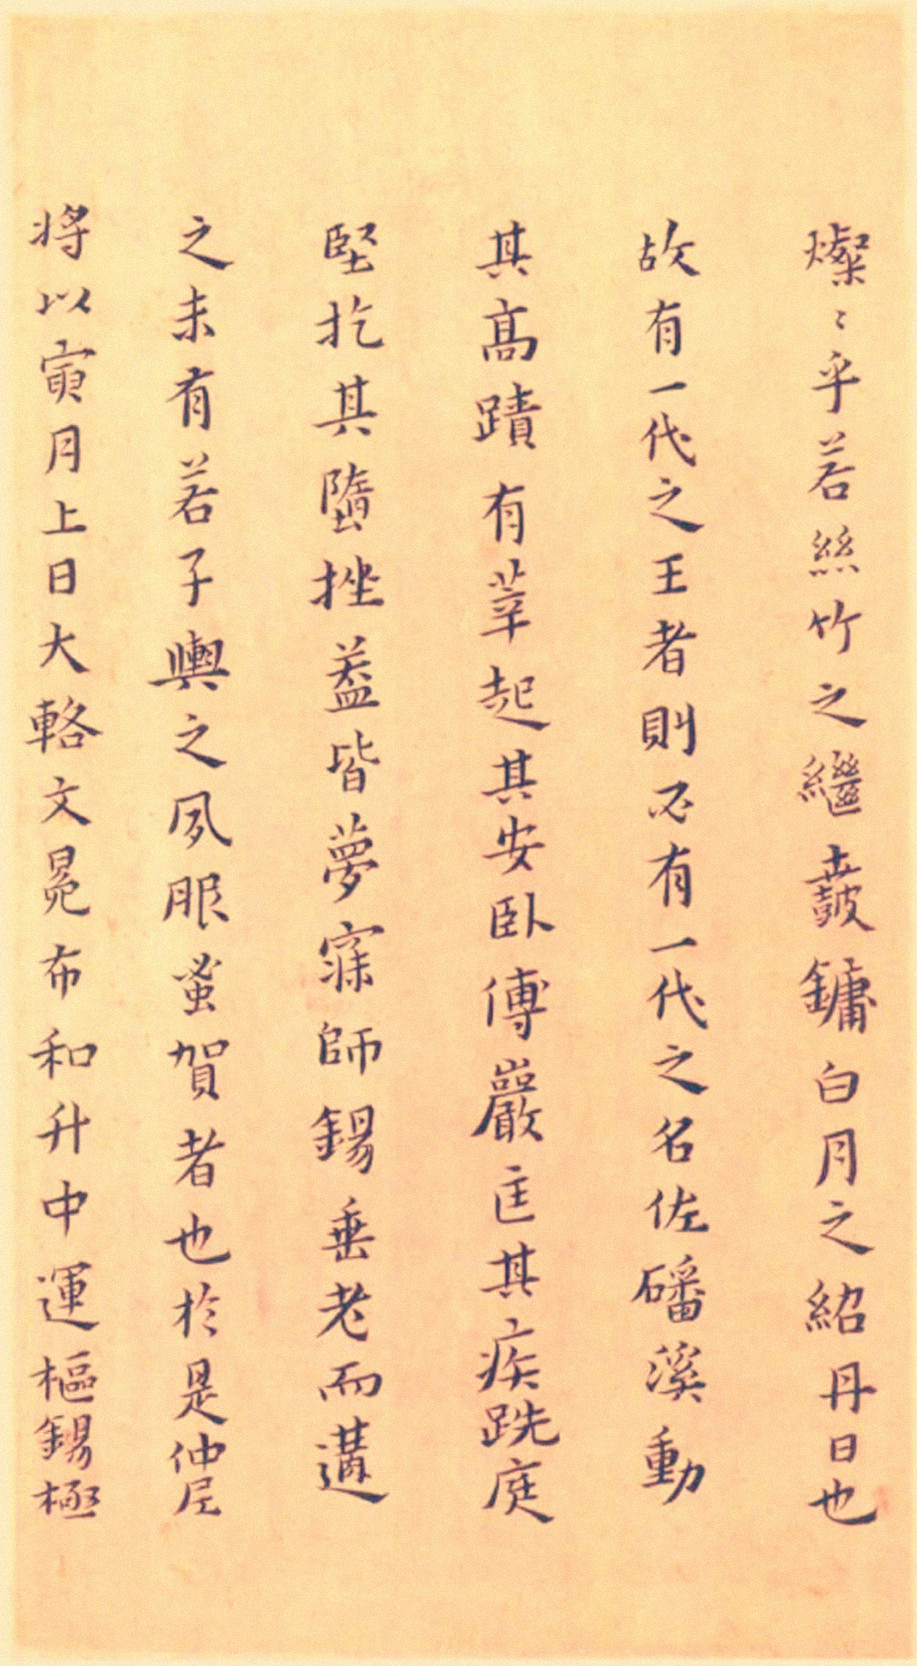 燦〻乎若絲竹之繼鼖鏞白月之紹丹日也
故有一代之王者則必有一代之名佐磻溪動
其高蹟有莘起其安卧傅巖匡其疾跣庭
堅扢其墮挫葢皆夢寐師錫垂老而遘
之未有若子輿之夙服蚤賀者也於是仲尼
将以寅月上日大輅文冕布和升中運樞錫極